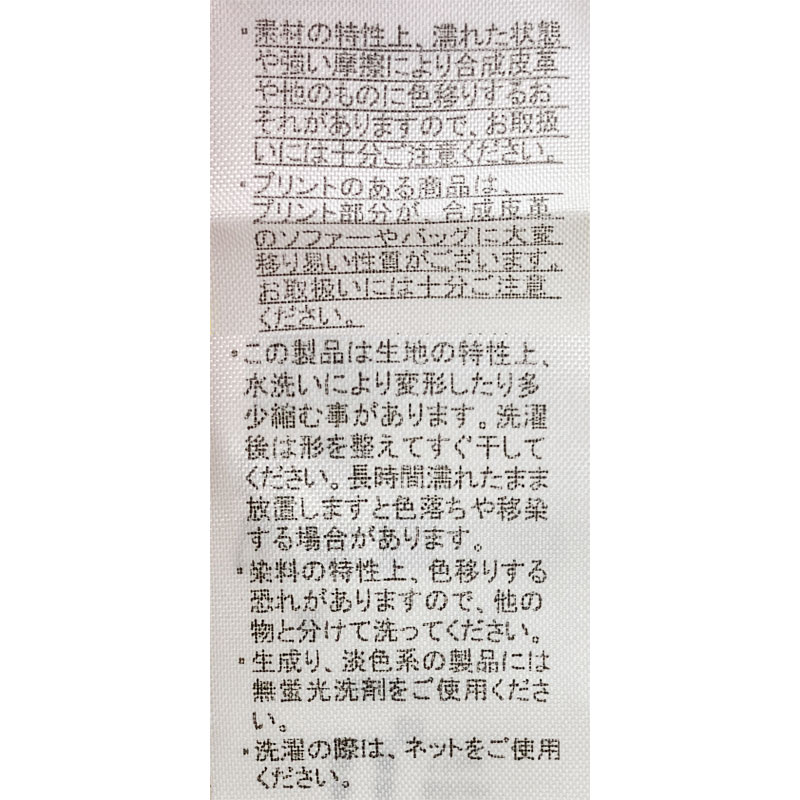 ・素材の特性上、濡れた状態
や強い摩擦により合成皮革
や他のものに色移りするお
それがありますので、お取扱
いには十分ご注意ください。
・プリントのある商品は、
プリント部分が、合成皮革
のソファーやバッグに大変
移り易い性質がございます。
お取扱いには十分ご注意
ください。
・この製品は生地の特性上、
水洗いにより変形したり多
少縮む事があります。洗濯
後は形を整えてすぐ干して
ください。長時間濡れたまま
放置しますと色落ちや移染
する場合があります。
・染料の特性上、色移りする
恐れがありますので、他の
物と分けて洗ってください。
・生成り、淡色系の製品には
無蛍光洗剤をご使用くださ
い。
・洗濯の際は、ネットをご使用
ください。